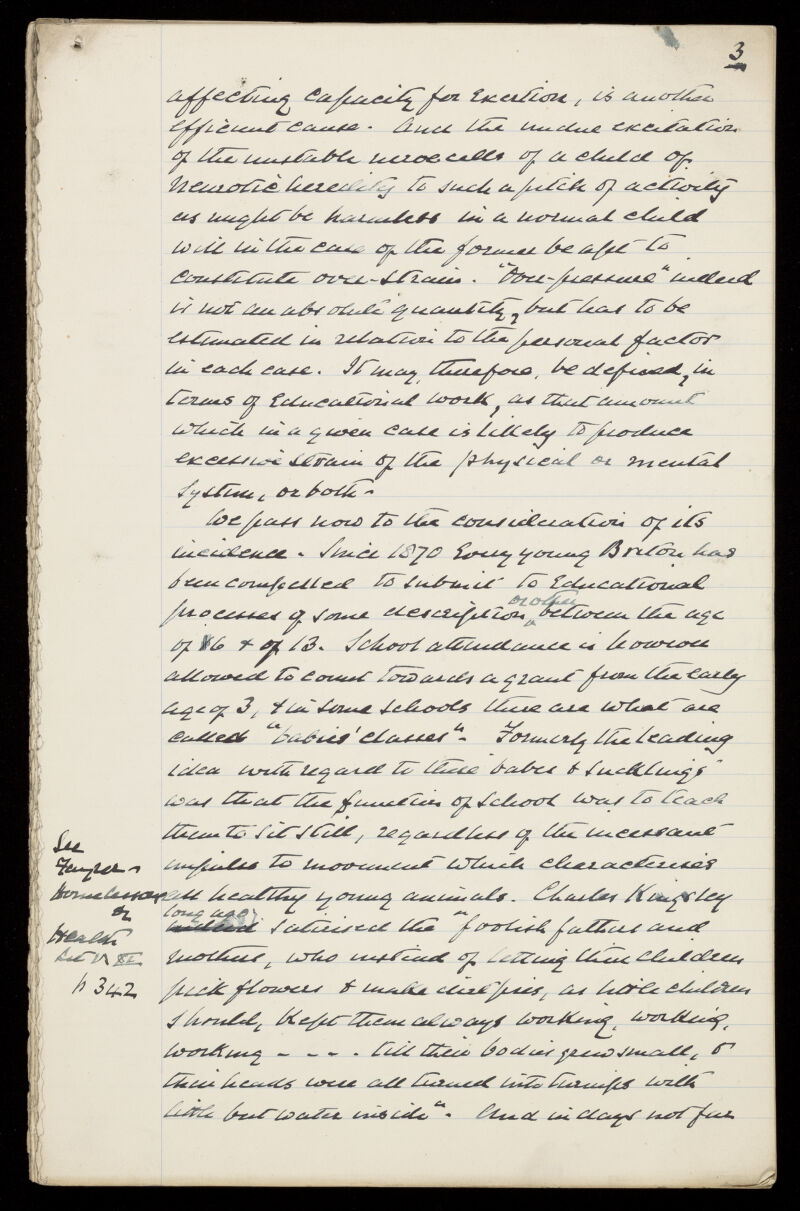 3
affecting capacity for Exertion, is another
efficient cause. And the undue excitation
of the unstable nerve cells of a child of
Neurotic heredity to such a pitch of activity
as might be harmless in a normal child
will in the case of the former be apt to
constitute over-strain. "Over-pressure" indeed
is not an absolute quantity, but has to be
estimated in relation to the personal factor
in each case. It may, therefore, be defined, in
terms of Educational work, as that amount
which in a given case is likely to produce
excessive strain of the physical or mental
system, or both.
We pass now to the consideration of its
incidence. Since 1870 Every young Briton has
been compelled to submit to Educational
or other
processes of some description between the age
of 6 & of 13. School attendance is however
allowed to count towards a grant from the early
age of 3, & in some schools there are what are
called "babies' classes". Formerly the leading
idea with regard to these "babes & sucklings"
was that the function of School was to teach
them to sit still, regardless of the incessant
impulse to movement which characterises
all healthy young animals. Charles Kingsley
long ago
satirised the "foolish fathers and
mothers, who instead of letting their children
pick flowers & make dirt pies, as little children
should, kept them always working, working,
working - - - - till their bodies grew small, &
their heads were all turned into turnips with
little but water inside". And in days not far
See
&
Health
p 342